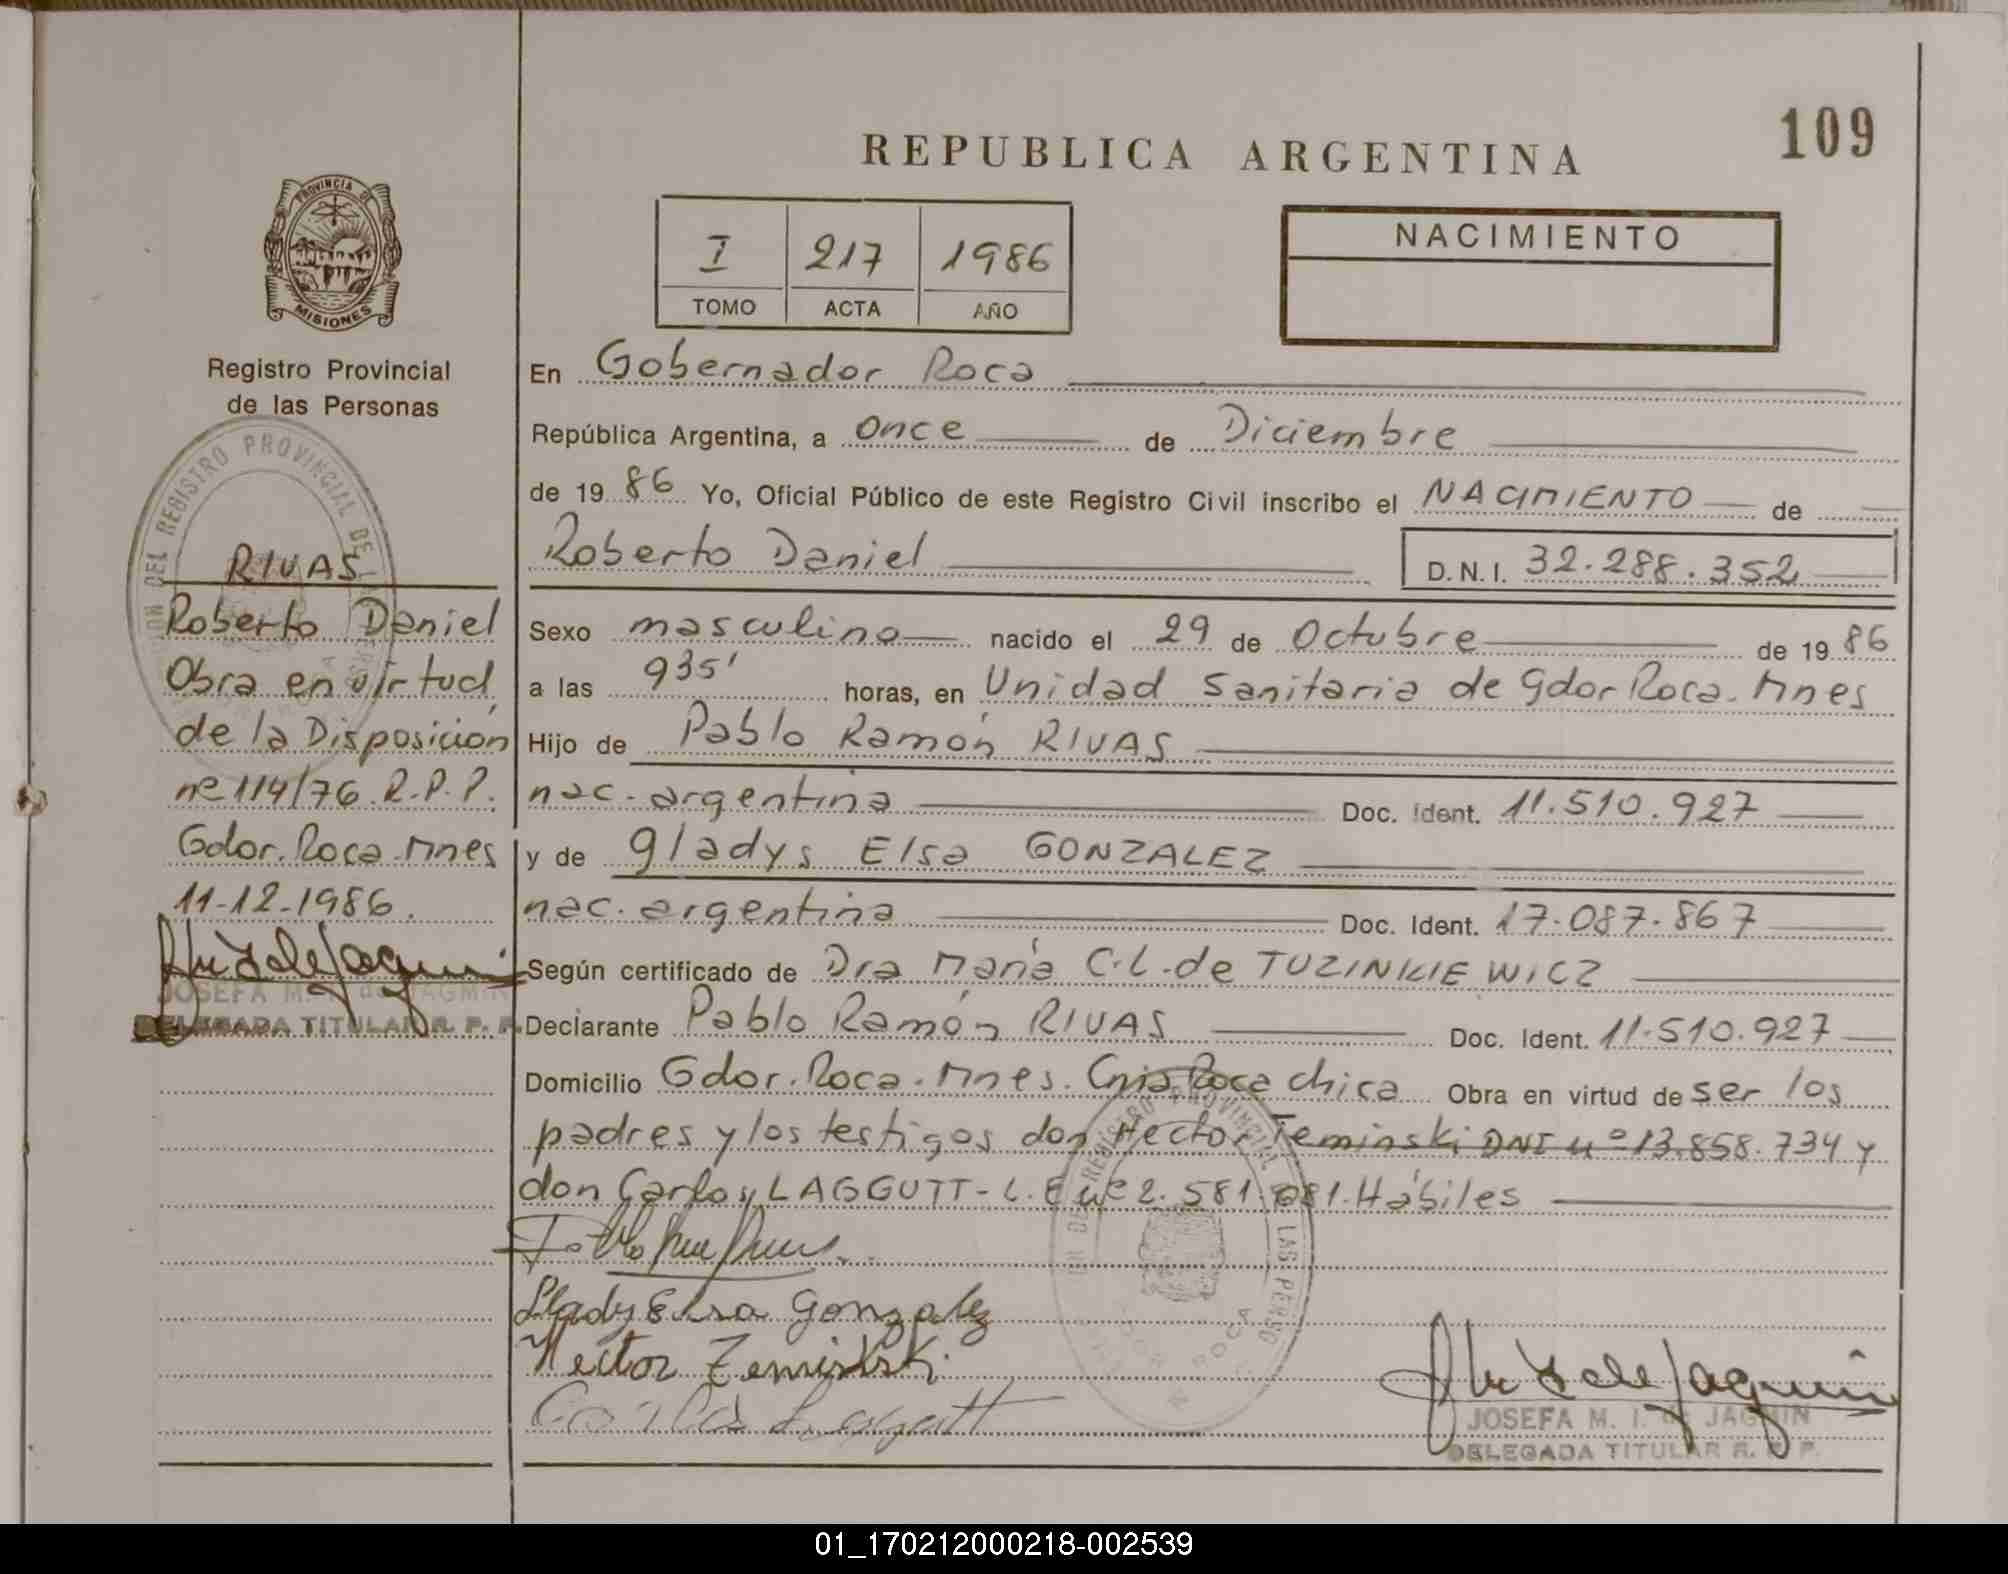 109
REPUBLICA ARGENTINA
PROVINCIA DE
MISIONES
Registro Provincial
de las Personas
I 217 1986
TOMO ACTA AÑO
NACIMIENTO
En Gobernador Roca
República Argentina, a once de Diciembre
de 19 86 Yo, Oficial Público de este Registro Civil inscribo el NACIMIENTO de
Roberto Daniel D.N.I. 32.288.352
Sexo masculino nacido el 29 de Octubre de 19 86
a las 935' horas, en Unidad Sanitaria de Gdor Roca. Mnes
Hijo de Pablo Ramón RIVAS
nac. argentina Doc. Ident. 11.510.927
y de Gladys Elsa GONZALEZ
nac. argentina Doc. Ident. 17.087.867
Según certificado de Dra María C.L. de TUZINKIEWICZ
Declarante Pablo Ramón RIVAS Doc. Ident. 11.510.927
Domicilio Gdor. Roca. Mnes. Cnia Roca chica Obra en virtud de ser los
padres y los testigos don Hector Zeminski DNI nº 13.858.734 y
don Carlos LAGGUTT - L.E nº 2.581.081. Hábiles
Gladys Elsa Gonzalez
Hector Zeminski
Carlos Laggutt
JOSEFA M. I. de JAGMIN
DELEGADA TITULAR R. P. P.
RIVAS
Roberto Daniel
Obra en virtud
de la Disposición
nº 114/76. R.P.P.
Gdor. Roca. Mnes
11-12-1986.
JOSEFA M. I. de JAGMIN
DELEGADA TITULAR R. P. P.
DEL REGISTRO PROVINCIAL DE
REGISTRO PROVINCIAL
LAS PERSO
ROCA
01_170212000218-002539